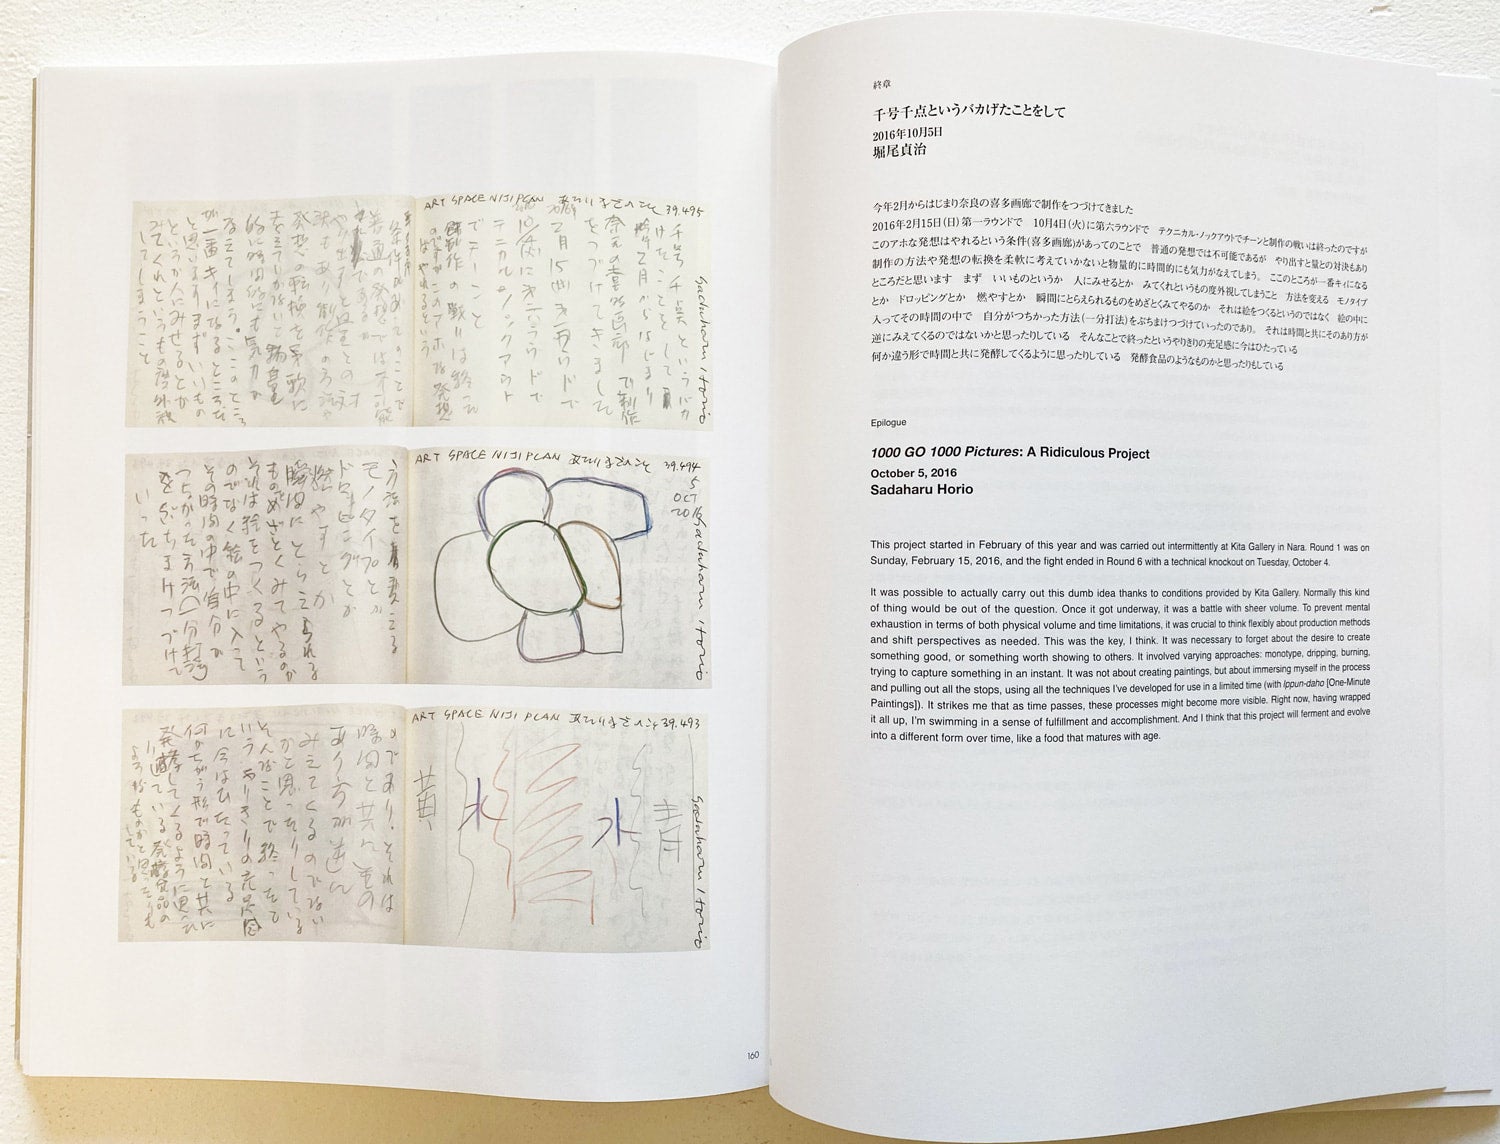 ART SPACE NIJI PLAN あたりまえのこと 39.495
千号千点というバカ
げたことをして
今年2月からはじまり
奈良の喜多画廊で制作
をつづけてきました
2月15日
テクニカルノックアウト
でチーンと
制作の戦いは終った
のですがこのアホな発想
はやれるという
条件があってのことで
普通の発想では不可能
であるが
やり出すと量との対
決もあり制作の方法や
発想の転換を柔軟に
考えていかないと物量
的に時間的にも気力が
なえてしまう。ここのところ
が一番キィになるところだ
と思います まず いいもの
というか人にみせるとか
みてくれというもの度外視
してしまうこと
Sadaharu Horio
ART SPACE NIJI PLAN あたりまえのこと 39.494
5
OCT
2016
Sadaharu Horio
方法を変える
モノタイプとか
ドロッピングとか
燃やすとか
瞬間にとらえられる
ものをめざとくみてやるのか
それは絵をつくるという
のでなく絵の中に入って
その時間の中で自分が
つちかった方法(一分打法)
をぶちまけつづけて
いった
ART SPACE NIJI PLAN あたりまえのこと 39.493
青
水
水
黄
Sadaharu Horio
のであり。それは
時間と共にもの
あり方が逆に
みえてくるのでない
かと思ったりしている
そんなことで終ったと
いうやりきりの充足感
に今はひたっている
何かちがう形で時間と共に
発酵してくるように思った
りしている 発酵食品の
ようなものかと思ったりも
している
160
終章
千号千点というバカげたことをして
2016年10月5日
堀尾貞治
今年2月からはじまり奈良の喜多画廊で制作をつづけてきました
2016年2月15日(日)第一ラウンドで 10月4日(火)に第六ラウンドで テクニカル・ノックアウトでチーンと制作の戦いは終ったのですが
このアホな発想はやれるという条件(喜多画廊)があってのことで 普通の発想では不可能であるが やり出すと量との対決もあり
制作の方法や発想の転換を柔軟に考えていかないと物量的に時間的にも気力がなえてしまう。 ここのところが一番キィになる
ところだと思います まず いいものというか 人にみせるとか みてくれというもの度外視してしまうこと 方法を変える モノタイプ
とか ドロッピングとか 燃やすとか 瞬間にとらえられるものをめざとくみてやるのか それは絵をつくるというのではなく 絵の中に
入ってその時間の中で 自分がつちかった方法(一分打法)をぶちまけつづけていったのであり。 それは時間と共にそのあり方が
逆にみえてくるのではないかと思ったりしている そんなことで終ったというやりきりの充足感に今はひたっている
何か違う形で時間と共に発酵してくるように思ったりしている 発酵食品のようなものかと思ったりもしている
Epilogue
1000 GO 1000 Pictures: A Ridiculous Project
October 5, 2016
Sadaharu Horio
This project started in February of this year and was carried out intermittently at Kita Gallery in Nara. Round 1 was on
Sunday, February 15, 2016, and the fight ended in Round 6 with a technical knockout on Tuesday, October 4.
It was possible to actually carry out this dumb idea thanks to conditions provided by Kita Gallery. Normally this kind
of thing would be out of the question. Once it got underway, it was a battle with sheer volume. To prevent mental
exhaustion in terms of both physical volume and time limitations, it was crucial to think flexibly about production methods
and shift perspectives as needed. This was the key, I think. It was necessary to forget about the desire to create
something good, or something worth showing to others. It involved varying approaches: monotype, dripping, burning,
trying to capture something in an instant. It was not about creating paintings, but about immersing myself in the process
and pulling out all the stops, using all the techniques I've developed for use in a limited time (with Ippun-daho [One-Minute
Paintings]). It strikes me that as time passes, these processes might become more visible. Right now, having wrapped
it all up, I'm swimming in a sense of fulfillment and accomplishment. And I think that this project will ferment and evolve
into a different form over time, like a food that matures with age.